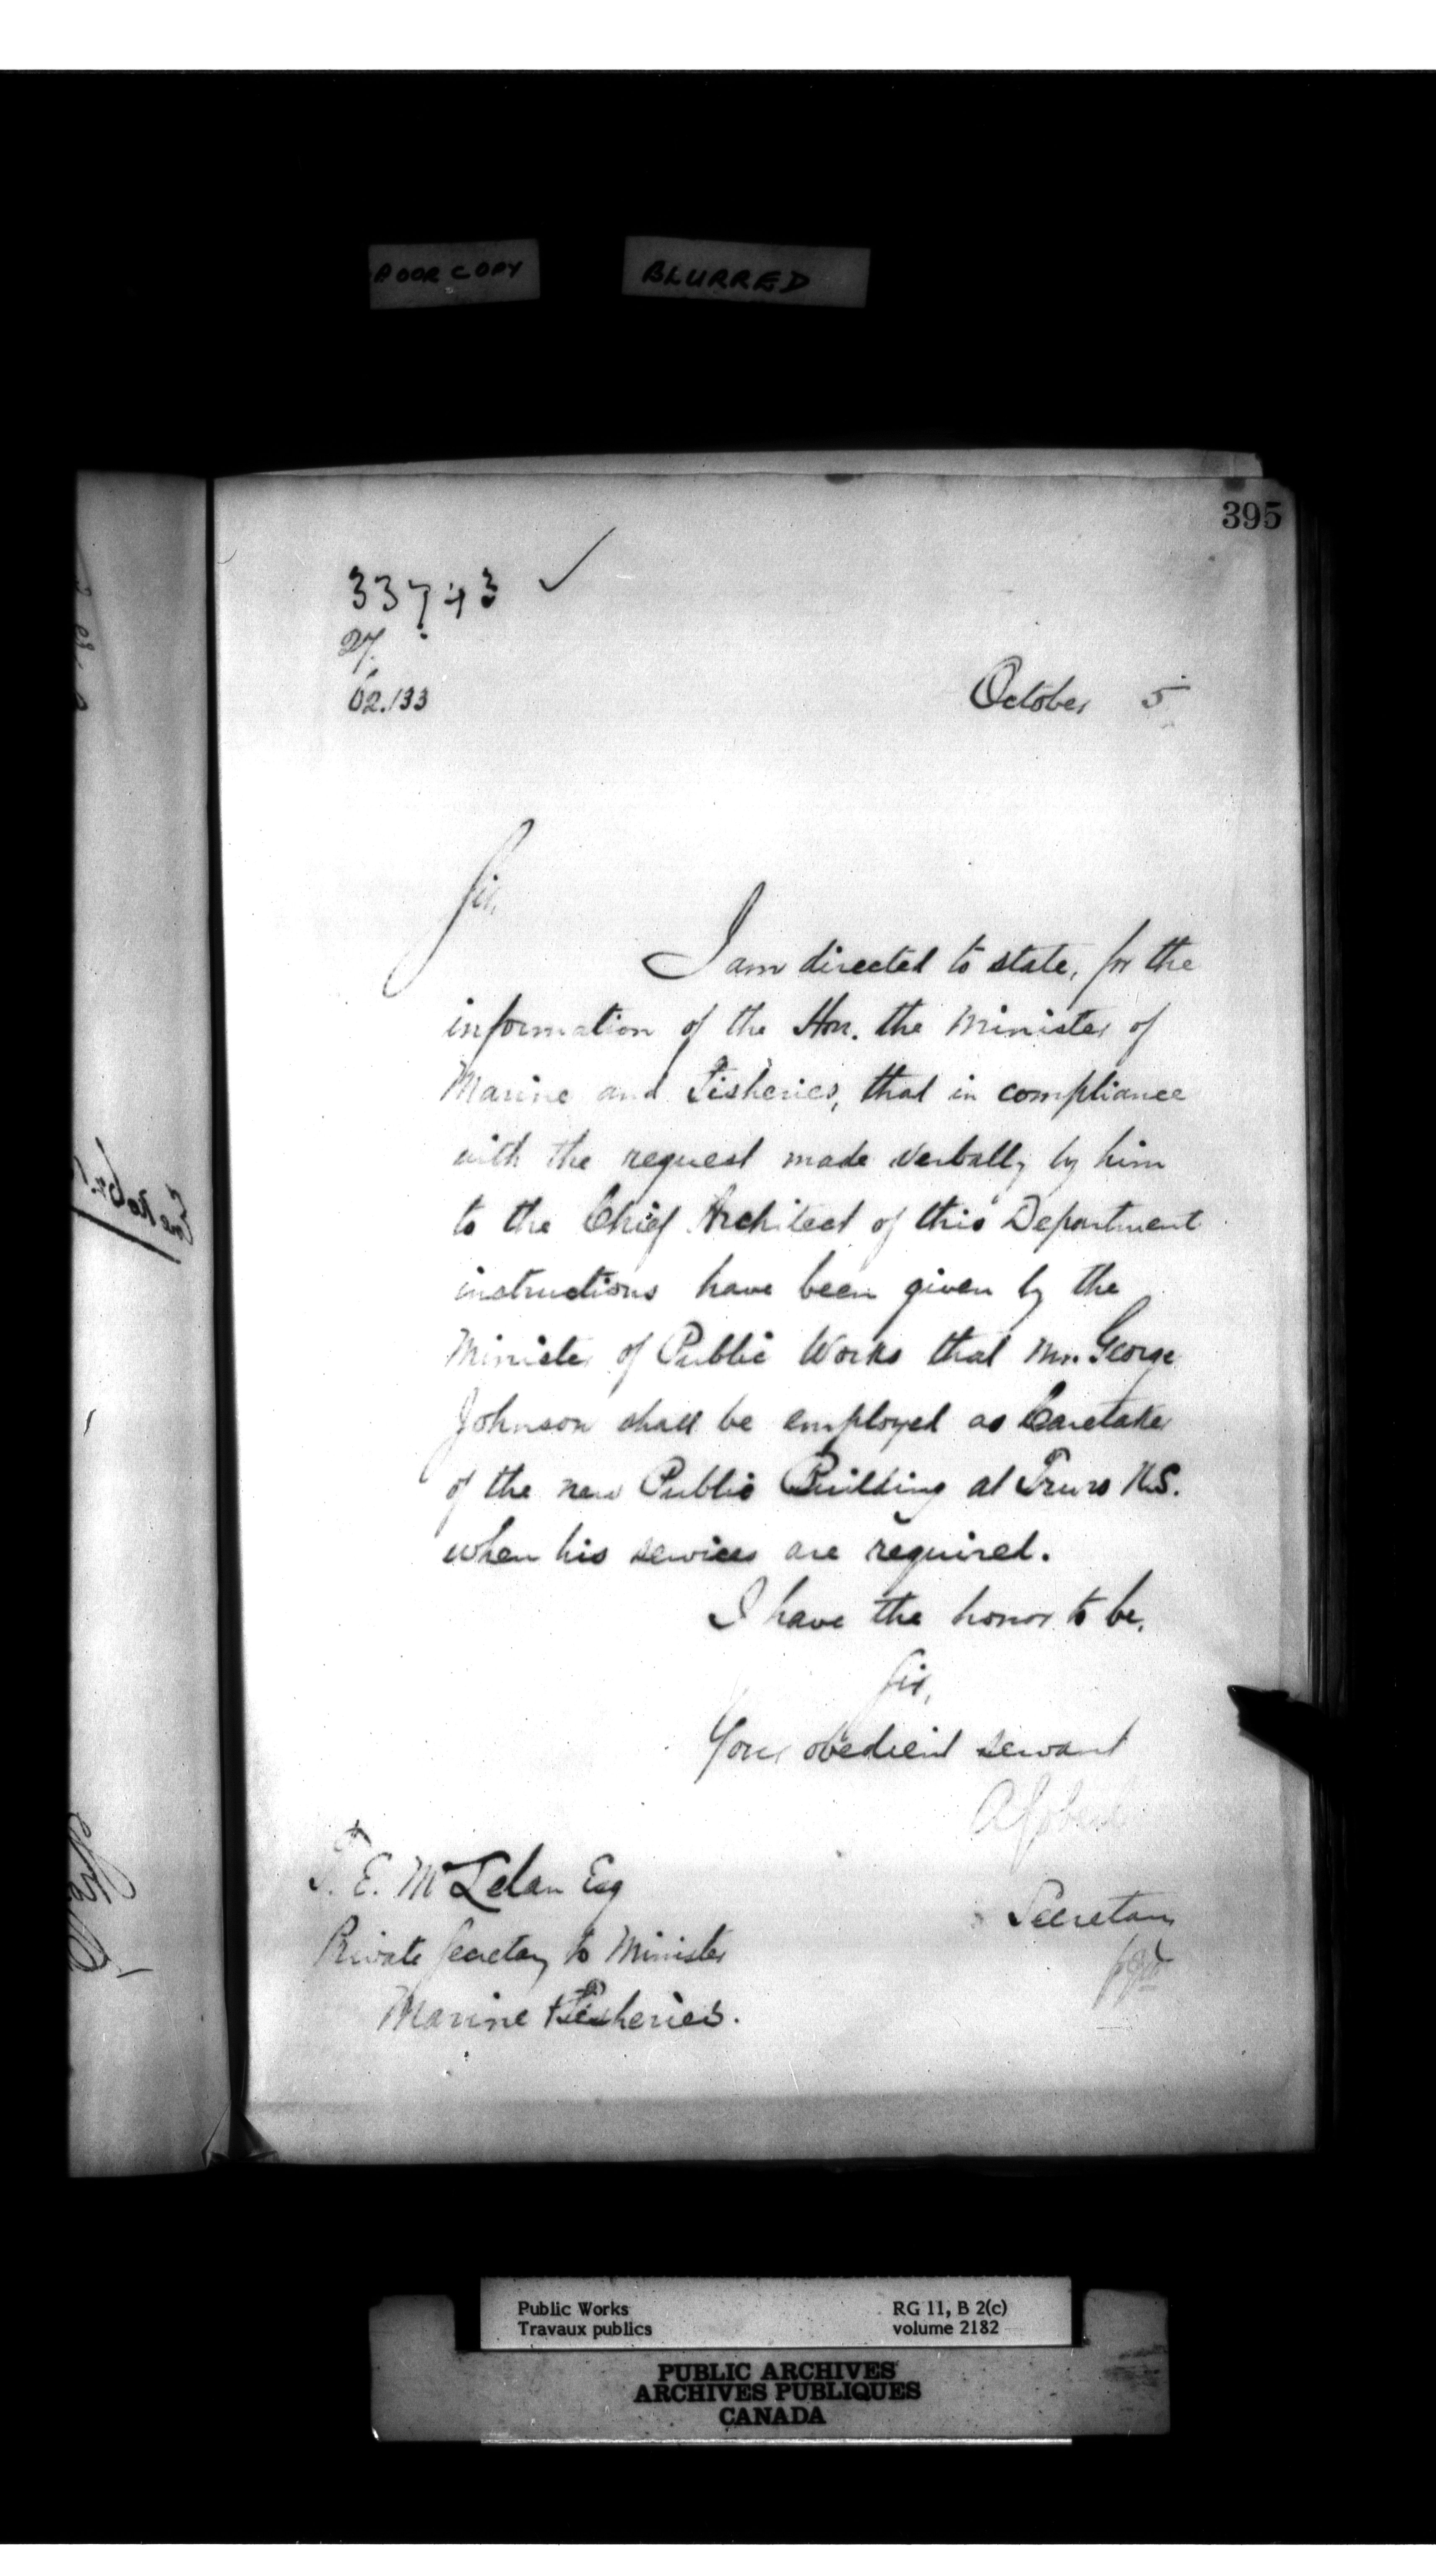 POOR COPY
BLURRED
395
33743 ✓
27.
62.133
October 5
Sir,
I am directed to state, for the
information of the Hon. the Minister of
Marine and Fisheries, that in compliance
with the request made verbally by him
to the Chief Architect of this Department
instructions have been given by the
Minister of Public Works that Mr. George
Johnson shall be employed as Caretaker
of the new Public Building at Truro N.S.
when his services are required.
I have the honor to be,
Sir,
Your obedient servant
Secretary
T. E. McLelan Esq
Private Secretary to Minister
Marine & Fisheries.
Public Works
Travaux publics
RG 11, B 2(c)
volume 2182
PUBLIC ARCHIVES
ARCHIVES PUBLIQUES
CANADA